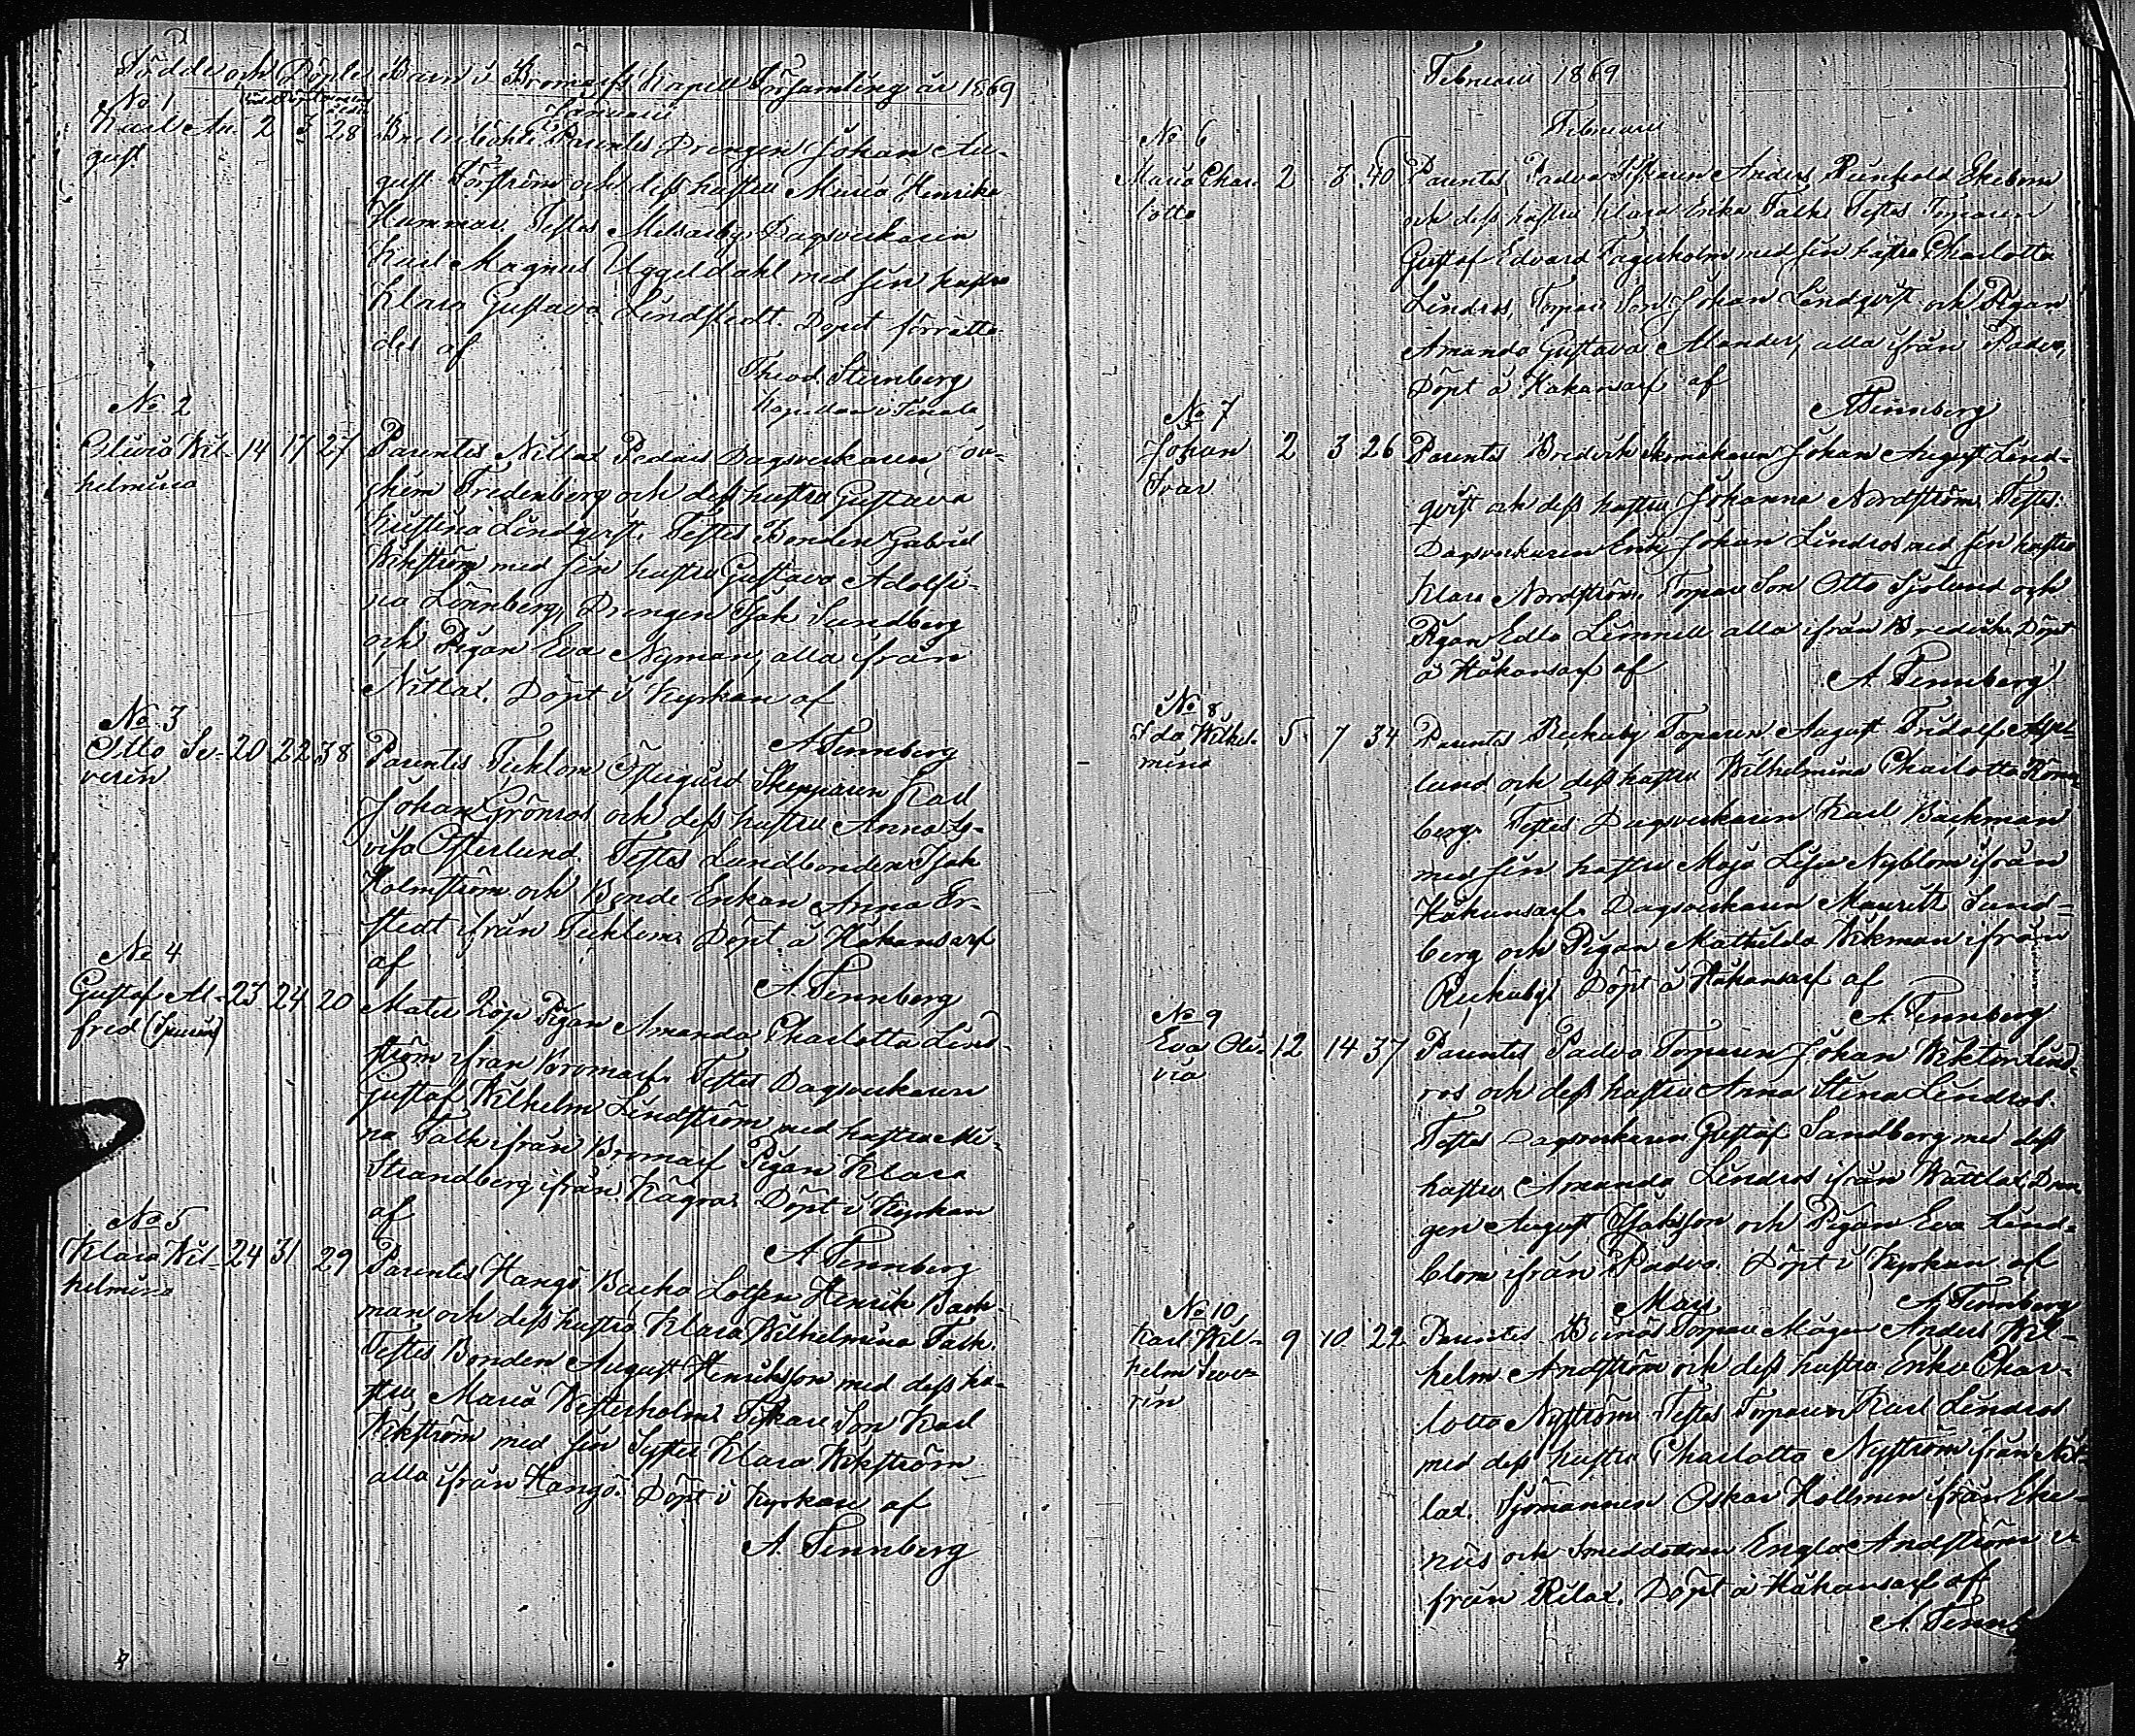 Födde och Döpte Barn i Bromarfs Kapell Församling år 1869
Januarii
No 1
Karl Au- 2 3 28 Parentes Drengen Johan Au-
gust
gust Törström och dess hustru Maria Henrika
Hammar. Testes Dagsverkaren
Karl Magnus Uggeldahl med sin hustru
Klara Gustava Lindstedt. Döpet förrätta-
des af
Theod. Stenberg
Kapellan i Tenala
No 2
Olivia Wil- 14 17 27 Parentes Nitlax Dagsverkaren
helmina
Fredenberg och dess hustru Gustava
Kristina Lindqvist. Testes Bonden Gabriel
Wikström med sin hustru Gustava Adolfi-
na Lönnberg, Drengen Isak Sundberg
och Pigan Eva Nyman, alla ifrån
Nitlax. Döpt i Kyrkan af
A. Tennberg
No 3
Otto Se- 20 22 38 Parentes Täktom Östergård Skepparen Karl
verin
Johan Grönros och dess hustru Anna Lo-
visa Österlund. Testes Landbonden Isak
Holmström och Bonde Enkan Anna Er-
stedt ifrån Täktom. Döpt å Håkansarf
af
A. Tennberg
No 4
Gustaf Al- 23 24 20 Mater Pigan Amanda Charlotta Lind-
fred (Spurius)
ström ifrån Bromarf. Testes Dagsverkaren
Gustaf Wilhelm Lindström med hustru Mi-
na Falk ifrån Bromarf Pigan Klara
Strandberg ifrån Kägra. Döpt i Kyrkan
af
A. Tennberg
No 5
Klara Wil- 24 31 29 Parentes Hangö Backa Lotsen Henrik Back-
helmina
man och dess hustru Klara Wilhelmina Falk.
Testes Bonden August Henriksson med dess hu-
stru Maria Westerholm. Fiskare Son Karl
Wikström med sin Syster Klara Wikström
alla ifrån Hangö. Döpt i Kyrkan af
A. Tennberg
Februarii 1869
Februarii
No 6
Maria Char- 2 8 40 Parentes Padva Fiskaren Anders Reinhold Ekebom
lotta
och dess hustru Klara Erika Falk. Testes Torparen
Gustaf Edvard Fagerholm med sin hustru Charlotta
Lindros, Torpare Son Johan Lindqvist och Pigan
Amanda Gustava Alander, alla ifrån Padva,
Döpt å Håkansarf af
A. Tennberg
No 7
Johan 2 3 26 Parentes Bredvik Skomakaren Johan August Lind-
Ivar
qvist och dess hustru Johanna Nordström. Testes:
Dagsverkaren Erik Johan Lindros med sin hustru
Klara Nordström. Torpare Son Otto Sjölund och
Pigan Edla Limnell alla ifrån Bredvik. Döpt
å Håkansarf af
A. Tennberg
No 8
Ida Wilhel- 5 7 34 Parentes Torparen August Fridolf Asp-
mina
lund och dess hustru Wilhelmina Charlotta Rönn-
berg. Testes Dagsverkaren Karl Backman
med sin hustru Maja Lisa Nyblom ifrån
Håkansarf. Dagsverkaren Mauritz Sund-
berg och Pigan Mathilda Wikman ifrån
Döpt å Håkansarf af
A. Tennberg
No 9
Eva Oli- 12 14 37 Parentes Padva Torparen Johan Wiktor Lind-
via
ros och dess hustru Anna Stina Lindros.
Testes Dagsverkaren Gustaf Sandberg med dess
hustru Amanda Lindros ifrån Wättlax. Dren-
gen August Isaksson och Pigan Eva Lind-
blom ifrån Padva. Döpt i Kyrkan af
A. Tennberg
Mars
No 10
Karl Wil- 9 10 22 Parentes Torpare Mågen Anders Wil-
helm Seve-
rin
helm Andström och dess hustru Erika Char-
lotta Nyström. Testes Torparen Karl Lindros
med dess hustru Charlotta Nyström ifrån Nit-
lax. Sjömannen Oskar Hollmen ifrån Eke-
näs och Smeddottren Engla Andström i-
från Rilax. Döpt å Håkansarf af
A. Tennb